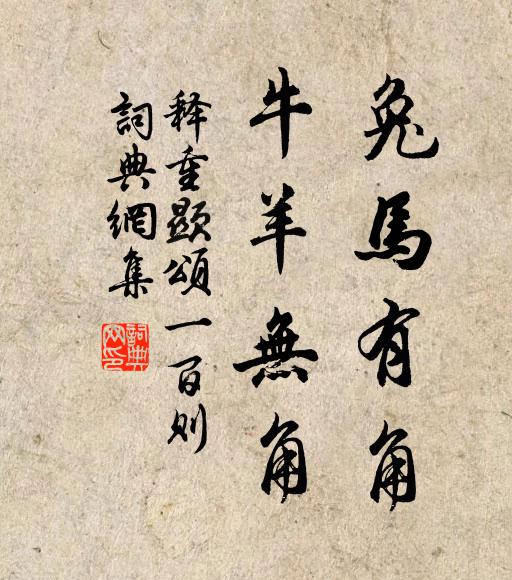 兔馬有角
牛羊無角
释重顯頌一百则
詞典網集
詞典
网印